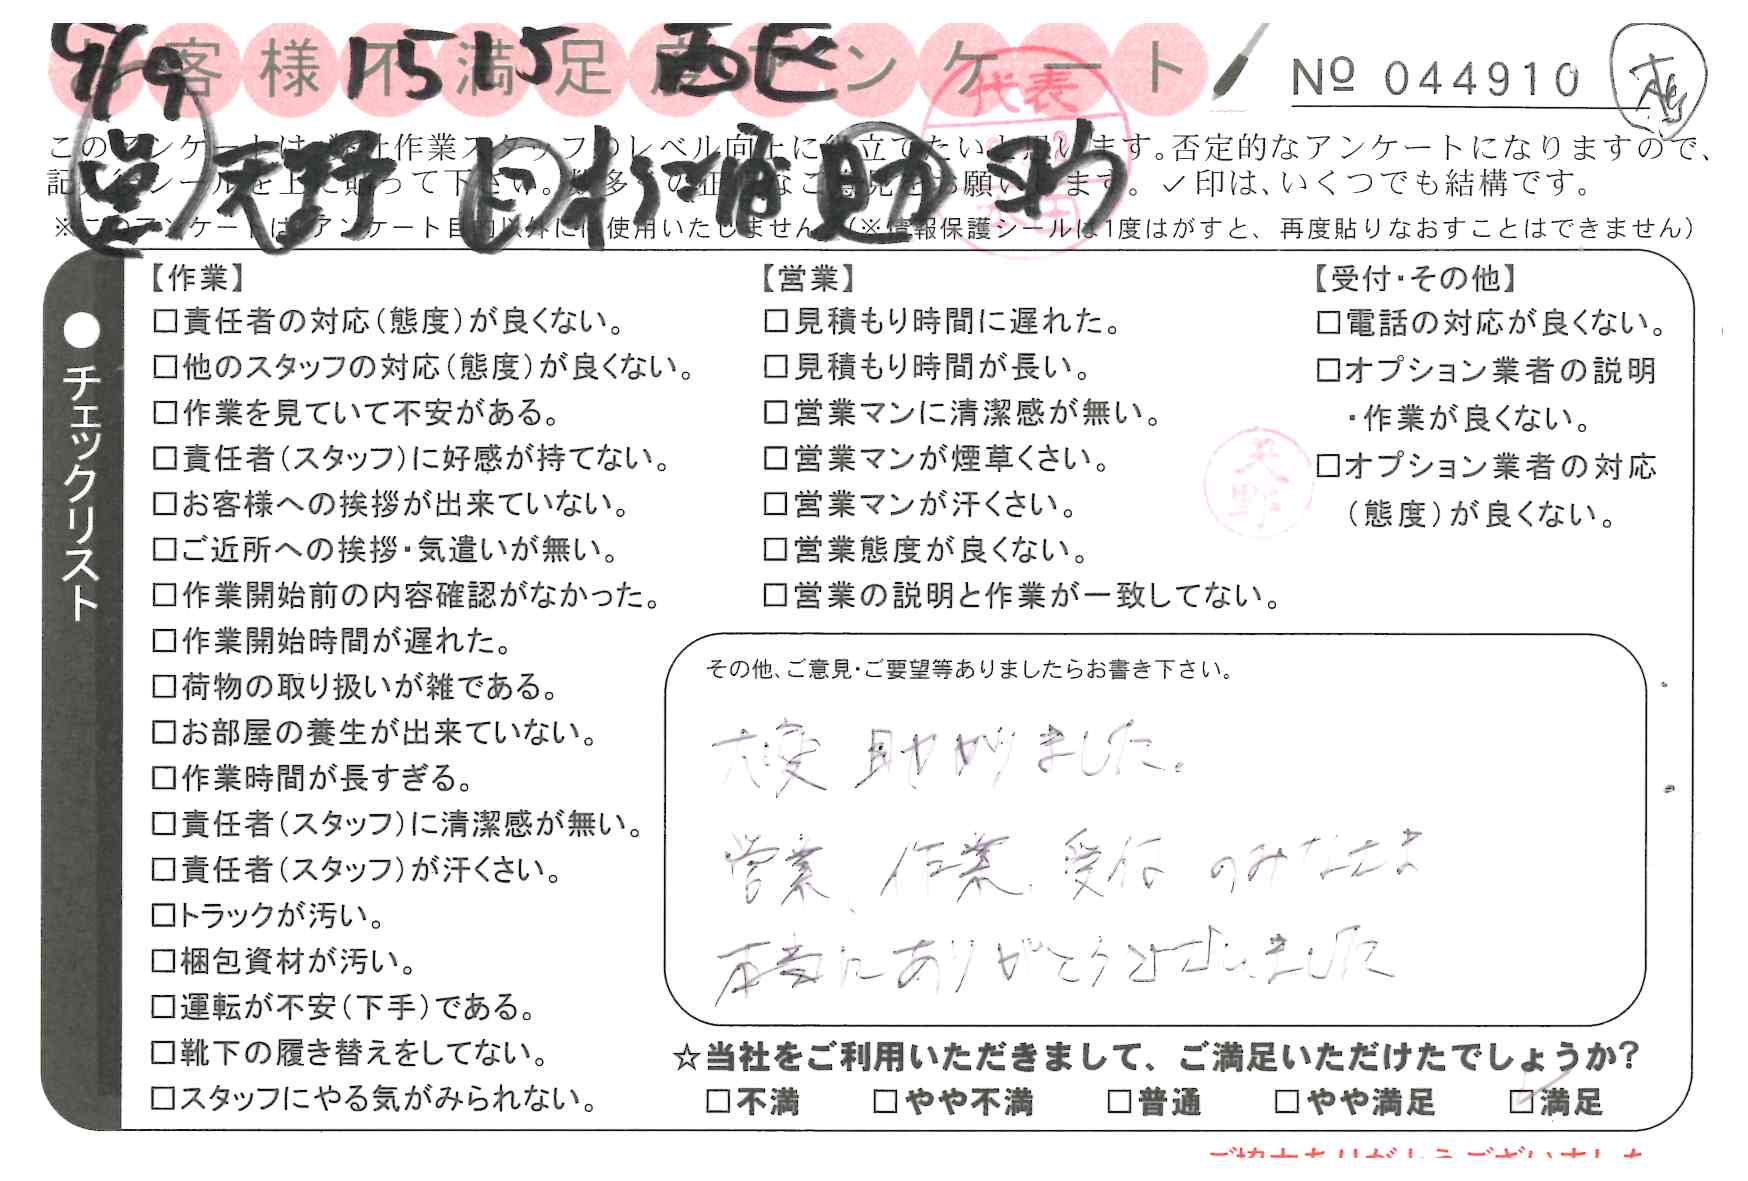 お客様不満足度アンケート
9/9 1515 西区
№ 044910
このアンケートは、弊社作業スタッフのレベル向上に役立てたいと思います。否定的なアンケートになりますので、
記入後シールを上に貼って下さい。数多くの正直なご意見をお願いします。✓印は、いくつでも結構です。
※このアンケートは、アンケート目的以外には使用いたしません。(※情報保護シールは1度はがすと、再度貼りなおすことはできません)
営 天野 杉浦 助
代表
●チェックリスト
【作業】
□責任者の対応(態度)が良くない。
□他のスタッフの対応(態度)が良くない。
□作業を見ていて不安がある。
□責任者(スタッフ)に好感が持てない。
□お客様への挨拶が出来ていない。
□ご近所への挨拶・気遣いが無い。
□作業開始前の内容確認がなかった。
□作業開始時間が遅れた。
□荷物の取り扱いが雑である。
□お部屋の養生が出来ていない。
□作業時間が長すぎる。
□責任者(スタッフ)に清潔感が無い。
□責任者(スタッフ)が汗くさい。
□トラックが汚い。
□梱包資材が汚い。
□運転が不安(下手)である。
□靴下の履き替えをしてない。
□スタッフにやる気がみられない。
【営業】
□見積もり時間に遅れた。
□見積もり時間が長い。
□営業マンに清潔感が無い。
□営業マンが煙草くさい。
□営業マンが汗くさい。
□営業態度が良くない。
□営業の説明と作業が一致してない。
【受付・その他】
□電話の対応が良くない。
□オプション業者の説明
・作業が良くない。
□オプション業者の対応
(態度)が良くない。
天野
その他、ご意見・ご要望等ありましたらお書き下さい。
大変 助かりました。
営業、作業、受付 のみなさま
本当にありがとうございました
☆当社をご利用いただきまして、ご満足いただけたでしょうか?
□不満 □やや不満 □普通 □やや満足 ☑満足
ご協力ありがとうございました